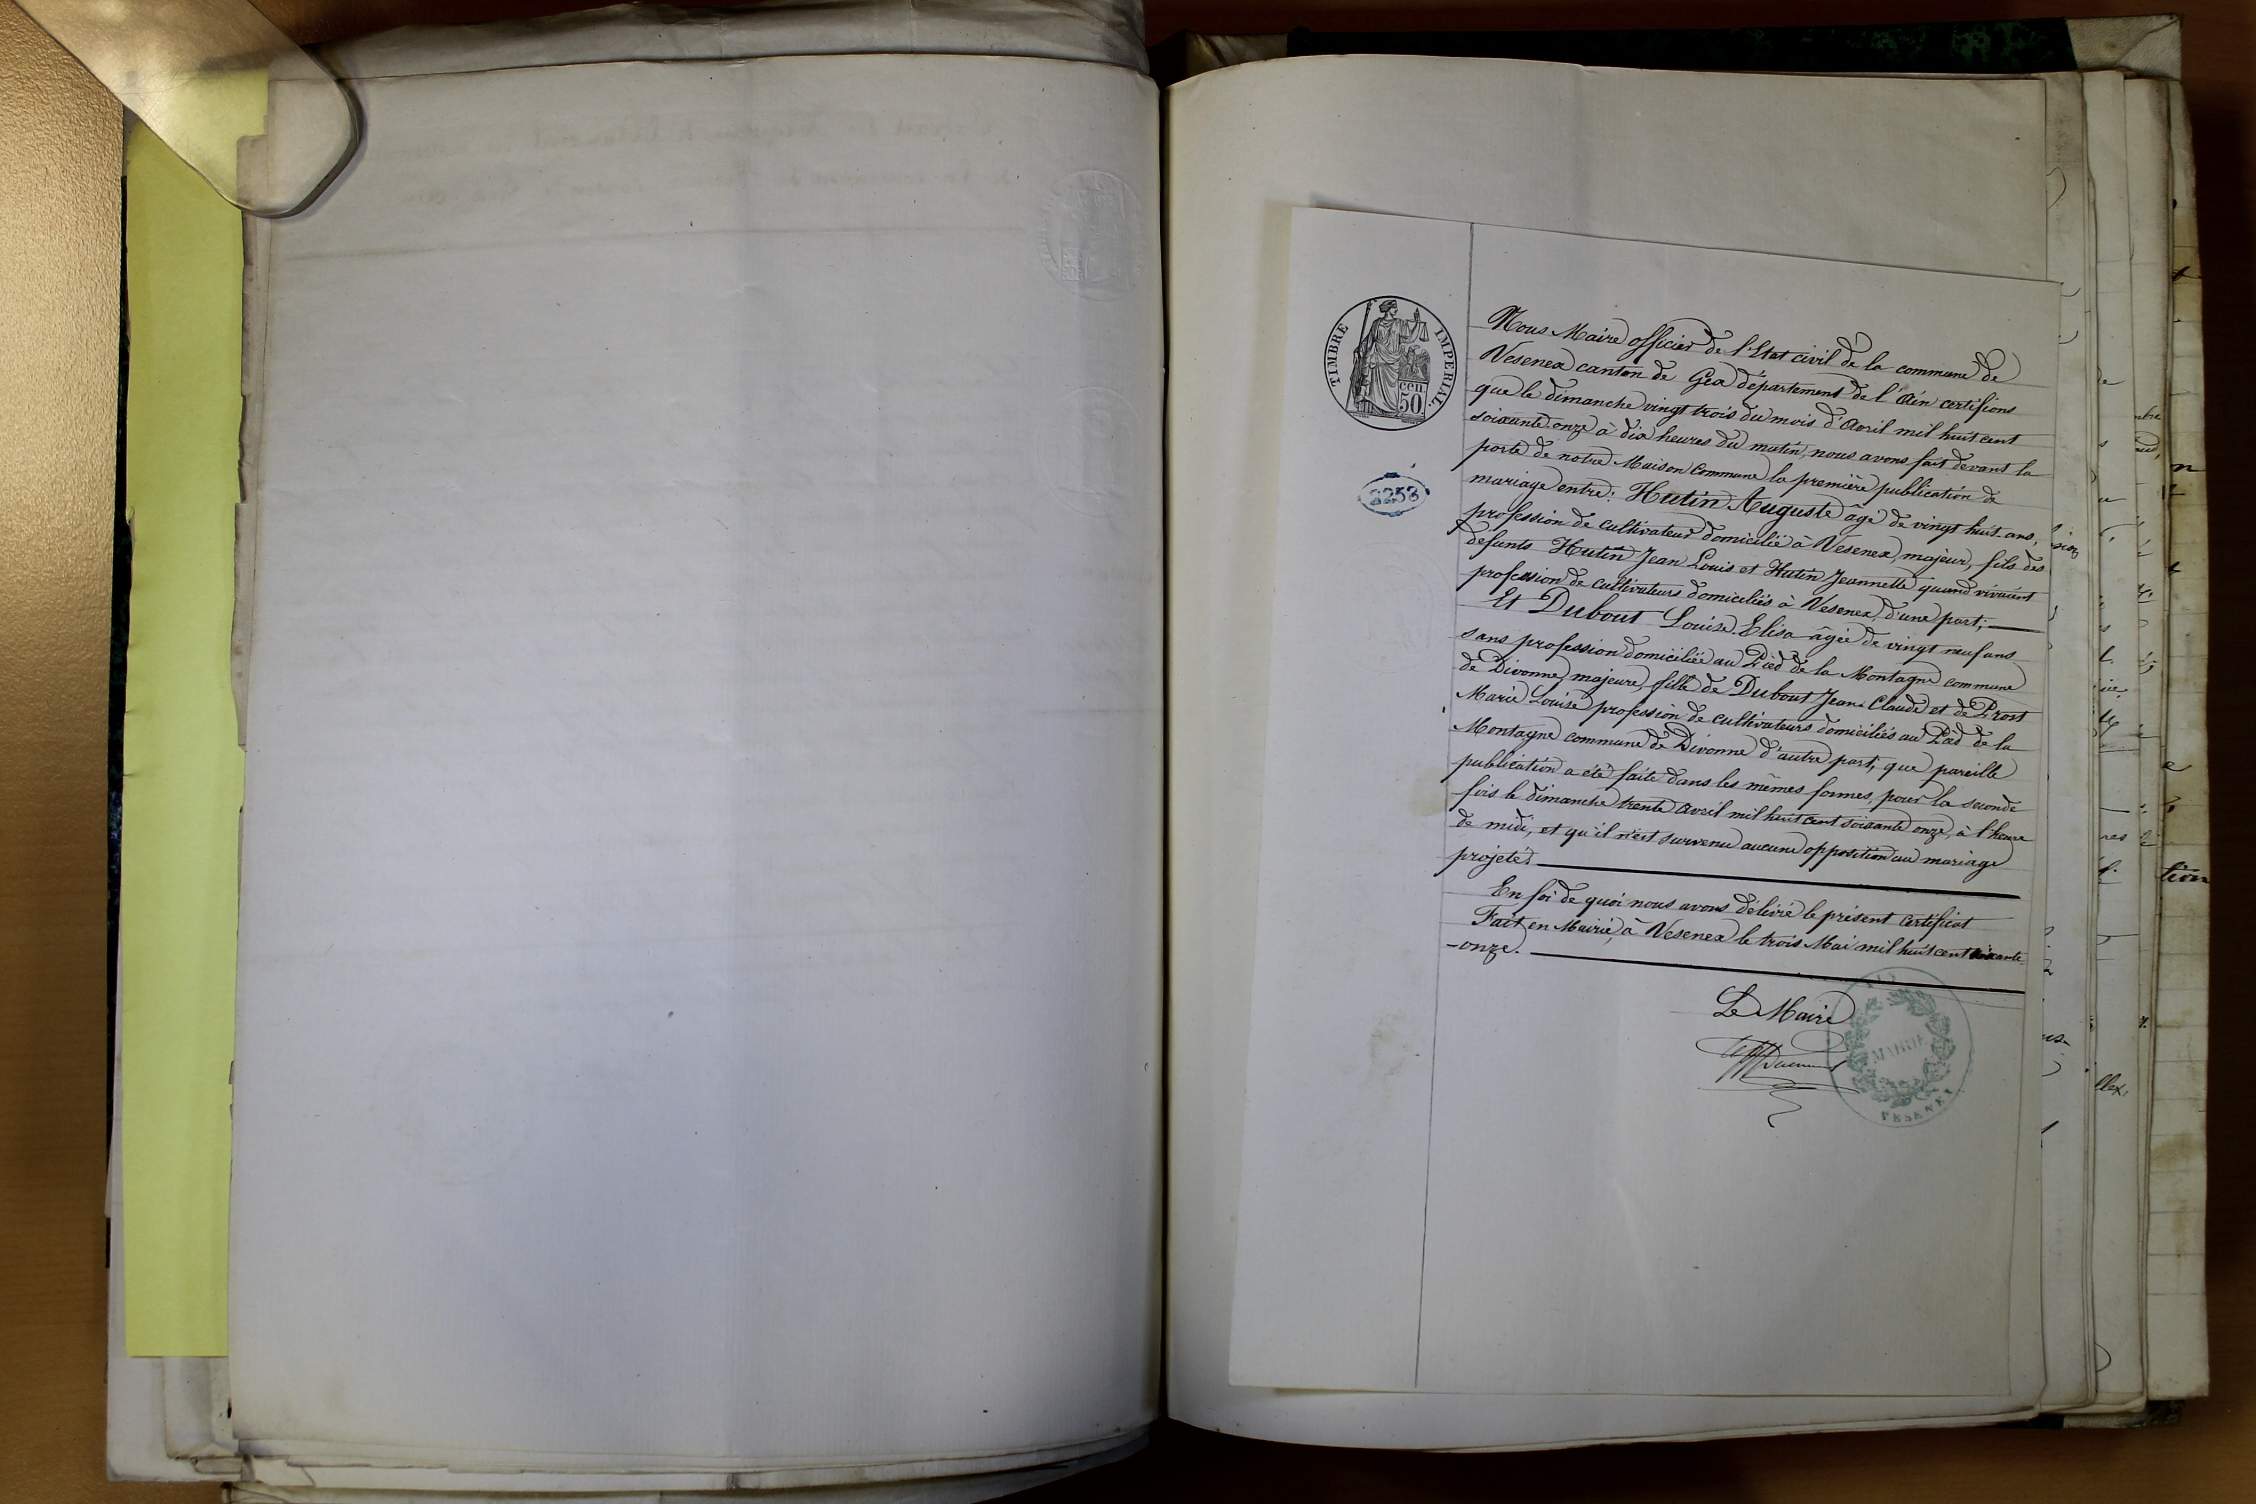 TIMBRE IMPERIAL.
cen
50.
2253
Nous Maire officier de l'Etat civil de la commune de
Vesenex canton de Gex département de l'Ain certifions
que le dimanche vingt trois du mois d'Avril mil huit cent
soixante onze à dix heures du matin, nous avons fait devant la
porte de notre Maison commune la première publication de
mariage entre: Hutin Auguste âgé de vingt huit ans,
profession de cultivateur domicilié à Vesenex, majeur, fils des
défunts Hutin Jean Louis et Hutin Jeannette quand vivaient
profession de cultivateurs domiciliés à Vesenex, d'une part;
Et Dubout Louise Elisa âgée de vingt neuf ans
sans profession domiciliée au Pied de la Montagne commune
de Divonne, majeure, fille de Dubout Jean Claude et de Prost
Marie Louise profession de cultivateurs domiciliés au Pied de la
Montagne commune de Divonne d'autre part, que pareille
publication a été faite dans les mêmes formes, pour la seconde
fois le dimanche trente Avril mil huit cent soixante onze, à l'heure
de midi, et qu'il n'est survenu aucune opposition au mariage
projeté.
En foi de quoi nous avons délivré le présent certificat
Fait en Mairie, à Vesenex le trois Mai mil huit cent soixante
-onze.
Le Maire
MAIRIE
VESENEX